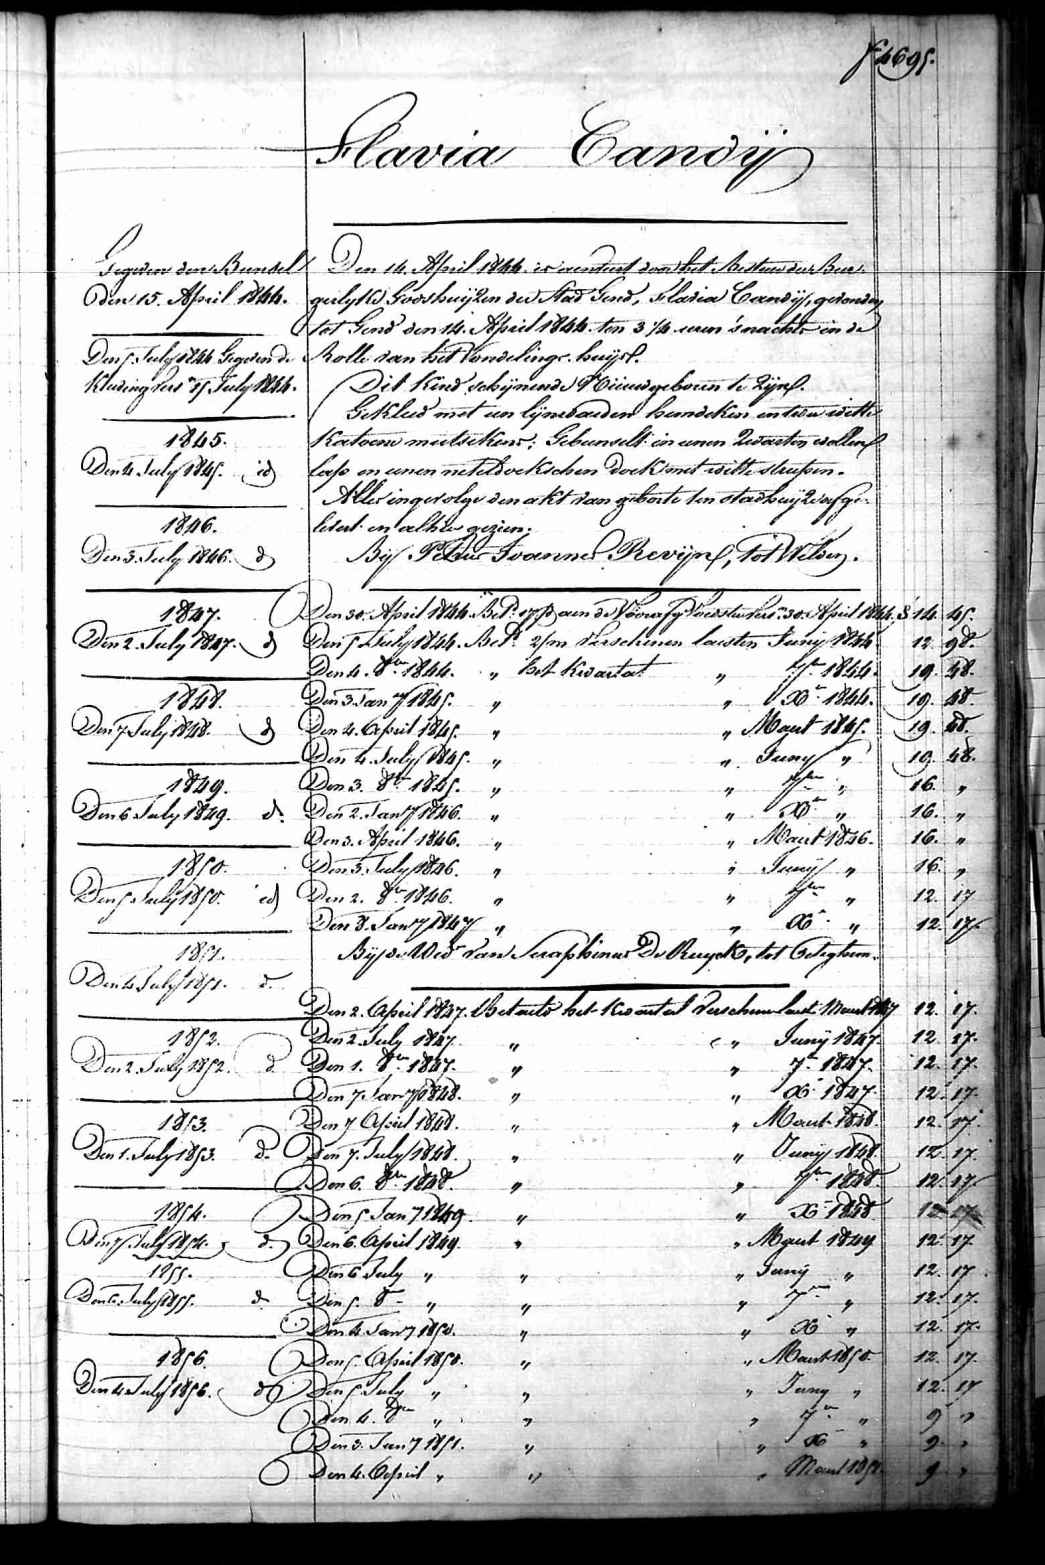 f 4695.
Flavia Candij
Gegeven den Bunsel
den 15. April 1844.
Den 5 July 1844 Gegeven de
Kleding
1845.
Den 4 July 1845. id
1846.
Den 3. July 1846. d
1847.
Den 2. July 1847. d
1848.
Den 7 July 1848. d
1849.
Den 6 July 1849. d.
1850.
Den 5 July 1850. id
1851.
Den 4 July 1851. d.
1852.
Den 2. July 1852. d
1853.
Den 1. July 1853. d.
1854.
Den 7 July 1854. d.
1855.
Den 6. July 1855. d
1856.
Den 4 July 1856. d
Den 14. April 1844. is door het Bestuer der Bur-
gerlyke Godshuijzen der Stad Gend, Flavia Candij, gevonden
tot Gend den 14. April 1844. ten 3 1/4 uren 's nachts in de
Rolle van het Vondelings-huijs.
Dit Kind schijnende Nieuwgeboren te zijn.
Gekleed met een lijnwaeden hemdeken en twee witte
Katoene mutsekens; Gebunselt in eenen zwarten wollen
lap en eenen neteldoekschen doek met witte streepen.
Alles ingevolge den akt van geboorte ten stadhuijze afge-
lezen en alhier gezien.
Bij Petrus Joannes Revijn, tot Welden.
Den 30. April 1844. Bet. 17 d aen de 30. April 1844. 14. 45.
Den 5 July 1844. Bet. 2/m verschenen laesten Junij 1844 12. 98.
Den 4. 8er 1844. " het Kwartal " 7er 1844. 19. 48.
Den 3 Jany 1845. " " Xr 1844. 19. 48.
Den 4. April 1845. " " Maert 1845. 19. 48.
Den 4. July 1845. " " Juny " 19. 48.
Den 3. 8er 1845. " " 7er " 16. "
Den 2. Jany 1846. " " Xr " 16. "
Den 3. April 1846. " " Maert 1846. 16. "
Den 3. July 1846. " " Junij " 16. "
Den 2. 8er 1846. " " 7er " 12. 17
Den 8. Jany 1847 " " Xr " 12. 17.
Bij de Wed. van Seraphinus De Ruyck, tot Oetighem.
Den 2. April 1847. Betaeld het Kwartal verschenen laest. Maert 1847 12. 17.
Den 2. July 1847. " " Junij 1847 12. 17.
Den 1. 8er 1847. " " 7r 1847. 12. 17.
Den 7. Jany 1848. " " Xr 1847. 12. 17.
Den 7 April 1848. " " Maert 1848. 12. 17.
Den 7. July 1848. " " Junij 1848 12. 17.
Den 6. 8er 1848. " " 7er 1848 12. 17.
Den 5 Jany 1849. " " Xr 1848 12. 17.
Den 6. April 1849. " " Maert 1849 12. 17.
Den 6 July " " " Junij " 12. 17.
Den 5. 8r " " " 7er " 12. 17.
Den 4 Jany 1850. " " Xr " 12. 17.
Den 5. April 1850. " " Maert 1850. 12. 17.
Den 5 July " " " Juny " 12. 17
Den 4. 8er " " " 7er " 9 "
Den 3. Jany 1851. " " Xr " 9. "
Den 4. April " " " Maert 1851. 9 "